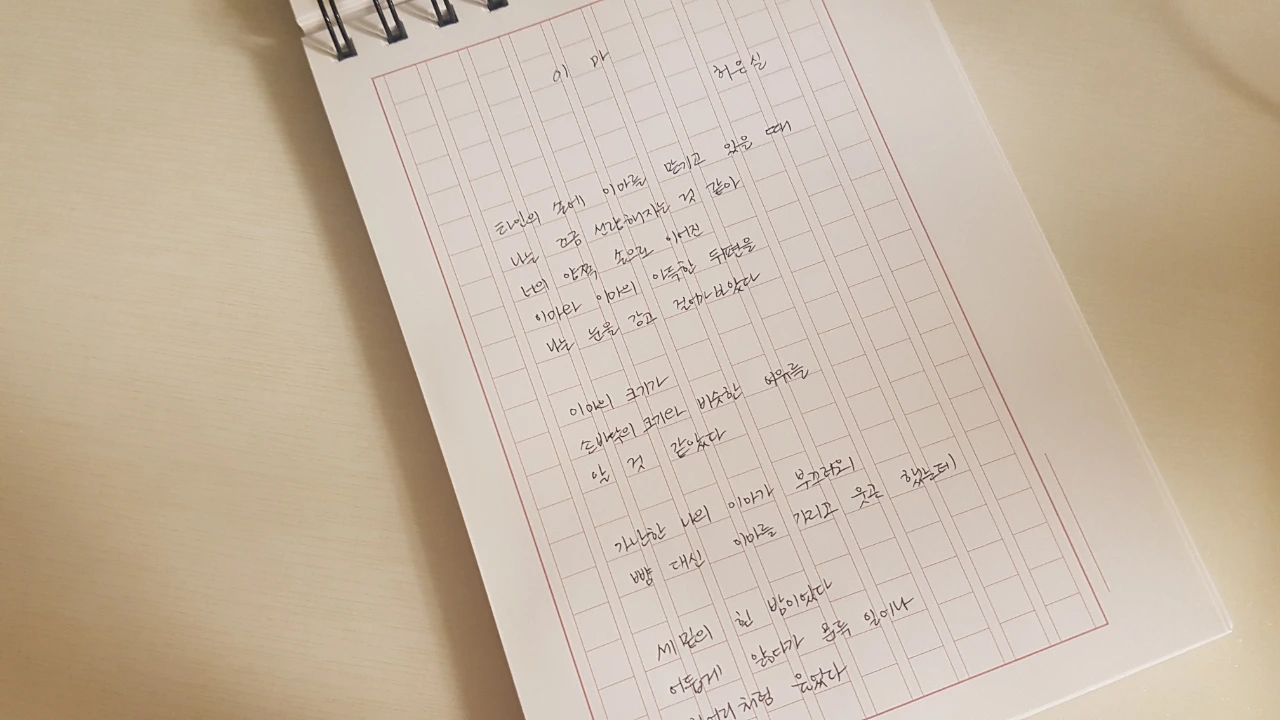 이마
허은실
타인의 손에 이마를 맡기고 있을 때
나는 조금 선량해지는 것 같아
너의 양쪽 손으로 이어진
이마와 이마의 아득한 뒤편을
나는 눈을 감고 걸어가보았다
이마의 크기가
손바닥의 크기와 비슷한 이유를
알 것 같았다
가난한 나의 이마가 부끄러워
뺨 대신 이마를 가리고 웃곤 했는데
세밑의 흰 밤이었다
어둡게 앓다가 문득 일어나
울었다